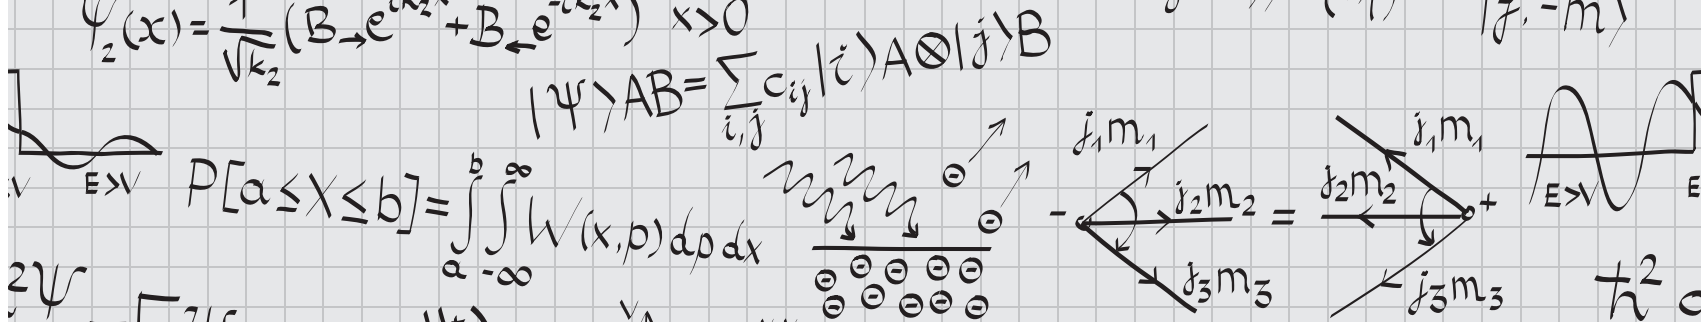 ψ₂(x) = 1/√k₂ (B→e^{ik₂x} + B←e^{-ik₂x}) x>0
|j, -m⟩
|Ψ⟩AB = ∑_{i,j} c_{ij} |i⟩A⊗|j⟩B
E>V
P[a≤X≤b] = ∫_a^b ∫_{-∞}^{∞} W(x,p) dp dx
⊖ ⊖
⊖ ⊖ ⊖ ⊖ ⊖
⊖ ⊖ ⊖ ⊖ ⊖
- j₁m₁ j₂m₂ j₃m₃ = j₁m₁ j₂m₂ j₃m₃ +
E>V
E
²Ψ
ħ²